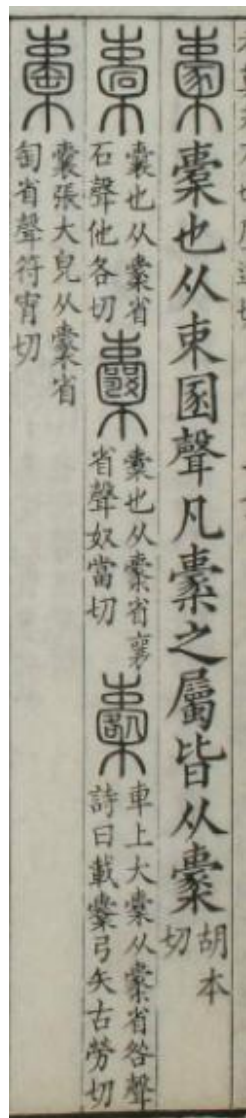 㯻橐也从束圂聲凡㯻之屬皆从㯻胡本切
橐囊也从㯻省石聲他各切囊橐也从㯻省襄省聲奴當切櫜車上大橐从㯻省咎聲詩曰載櫜弓矢古勞切
㯱囊張大皃从㯻省匋省聲符宵切